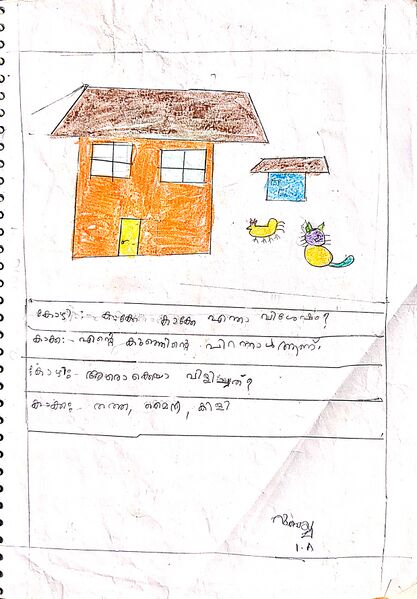 കോഴി:- കാക്കേ കാക്കേ എന്താ വിശേഷം?
കാക്ക:- എന്റെ കുഞ്ഞിന്റെ പിറന്നാൾ ആണ്.
കോഴി:- ആരൊക്കെയാ വിളിച്ചത്?
കാക്ക:- തത്ത, മൈന, കിളി
1.A